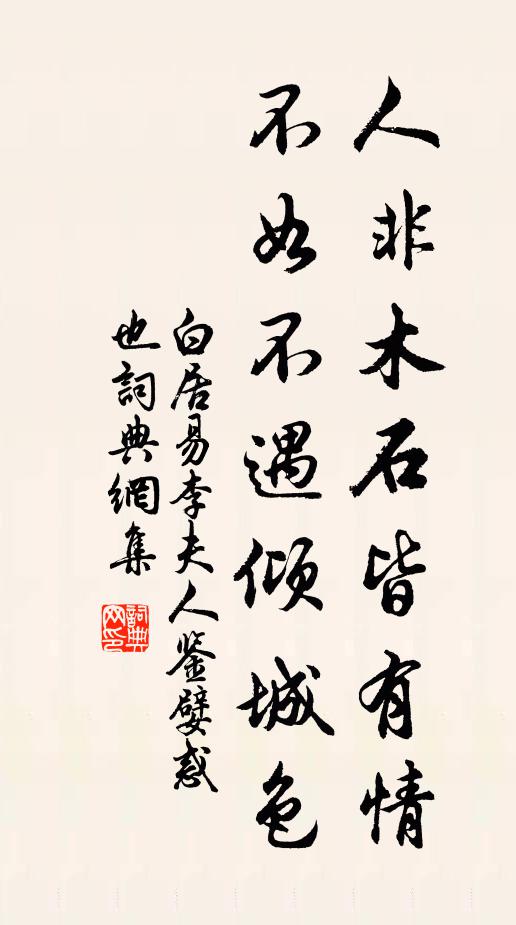 人非木石皆有情
不如不遇傾城色
白居易李夫人鉴嬖惑
也詞典網集
詞典网印